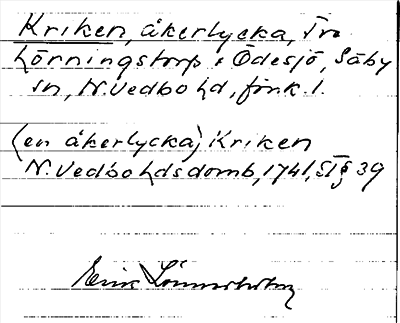 Kriken, åkerlycka, Tro
Lönningstorp i Ödesjö, Säby
sn, N. Vedbo hd, fönk. 1.
(en åkerlycka) Kriken
N. Vedbo hds domb, 1741, ST § 39
Eric Lönnerholm